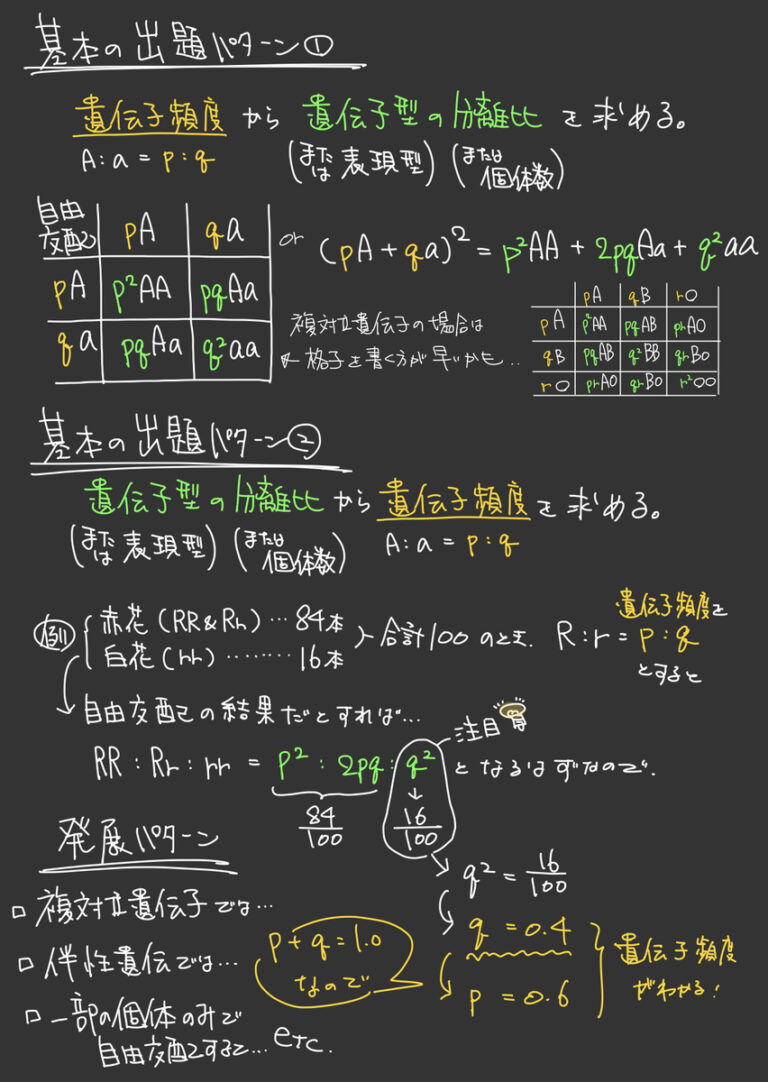 基本の出題パターン①
遺伝子頻度から遺伝子型の分離比を求める。
A:a = p:q
(または表現型) (または個体数)
自由交配 pA qa
pA p²AA pqAa
qa pqAa q²aa
or (pA + qa)² = p²AA + 2pqAa + q²aa
複対立遺伝子の場合は
← 格子を書く方が早いかも..
pA qB rO
pA p²AA pqAB prAO
qB pqAB q²BB qrBO
rO prAO qrBO r²OO
基本の出題パターン②
遺伝子型の分離比から遺伝子頻度を求める。
(または表現型) (または個体数)
A:a = p:q
例 赤花(RR&Rr)… 84本
白花(rr)……… 16本
合計100のとき.
遺伝子頻度を
R:r = p:q
とすると
自由交配の結果だとすれば…
注目
RR:Rr:rr = p² : 2pq : q² となるはずなので.
84/100 16/100
q² = 16/100
q = 0.4
p + q = 1.0
なので
p = 0.6
遺伝子頻度
がわかる!
発展パターン
□ 複対立遺伝子では…
□ 伴性遺伝では…
□ 一部の個体のみで
自由交配すると… etc.